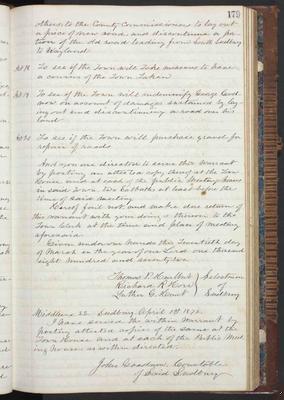 179
others to the County Commissioners to lay out
a piece of new road and discontinue a
portion of the old road leading from South Sudbury
to Wayland.
Art 18 To see if the Town will take measures to have
a census of the Town taken
Art 19 To see if the Town will indemnify George
on account of damages sustained by
laying out and discontinuing a road over his
land.
Art 20 To see if the Town will purchase gravel for
repair of roads
And you are directed to serve this Warrant
by posting an attested copy thereof at the Town
House and at each of the Public Meeting Houses
in said Town two Sabbaths at least before the
time of said meeting
Hereof fail not and make due return of
this warrant with your doings thereon to the
Town Clerk at the time and place of meeting
aforesaid.
Given under our hands this Twentieth day
of March in the year of our Lord one thousand
eight hundred and seventy two
Thomas P. Hurlbut
Richard R. Horr
Luther C.
Selectmen
of
Sudbury
Middlesex SS. Sudbury April 1st 1872.
I have served the within Warrant by
posting attested copies of the same at the
Town House and at each of the Public
Meeting Houses as within directed.
John Goodnow Constable
of Said Sudbury